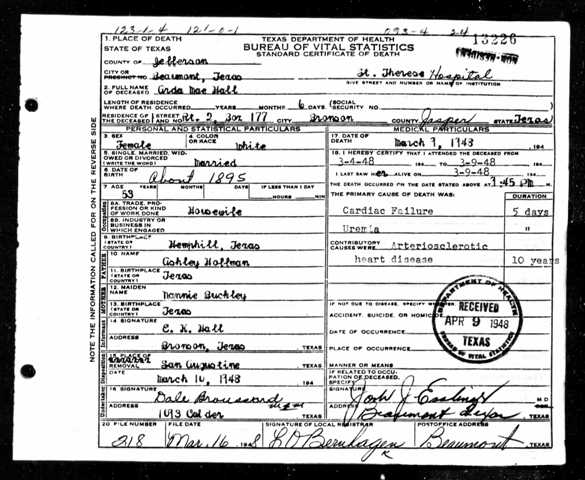 123-1-4 121-0-1 093-4 24
13226
TEXAS DEPARTMENT OF HEALTH
BUREAU OF VITAL STATISTICS
STANDARD CERTIFICATE OF DEATH
1. PLACE OF DEATH
STATE OF TEXAS
COUNTY OF Jefferson
CITY OR PRECINCT NO. Beaumont, Texas St. Therese Hospital
GIVE STREET AND NUMBER OR NAME OF INSTITUTION
2. FULL NAME OF DECEASED Orda Mae Hall
LENGTH OF RESIDENCE WHERE DEATH OCCURRED YEARS MONTHS 6 DAYS (SOCIAL SECURITY NO.
RESIDENCE OF THE DECEASED STREET AND NO. Rt. 2, Box 177 CITY Bronson COUNTY Jasper STATE Texas
PERSONAL AND STATISTICAL PARTICULARS
3. SEX Female 4. COLOR OR RACE White
5. SINGLE, MARRIED, WIDOWED OR DIVORCED (WRITE THE WORD) Married
6. DATE OF BIRTH About 1895
7. AGE YEARS MONTHS DAYS IF LESS THAN 1 DAY
53 HOURS MIN
8A. TRADE, PROFESSION OR KIND OF WORK DONE Housewife
8B. INDUSTRY OR BUSINESS IN WHICH ENGAGED
9. BIRTHPLACE (STATE OR COUNTRY) Hemphill, Texas
10. NAME Ashley Hoffman
11. BIRTHPLACE (STATE OR COUNTRY) Texas
12. MAIDEN NAME Nannie Buckley
13. BIRTHPLACE (STATE OR COUNTRY) Texas
14. SIGNATURE E. K. Hall
ADDRESS Bronson, Texas TEXAS
15. PLACE OF REMOVAL San Augustine TEXAS
DATE March 10, 1948
16. SIGNATURE Dale Broussard
ADDRESS 1093 Calder TEXAS
MEDICAL PARTICULARS
17. DATE OF DEATH March 9, 1948 194
18. I HEREBY CERTIFY THAT I ATTENDED THE DECEASED FROM
3-4-48 194 TO 3-9-48 194
I LAST SAW HER ALIVE ON 3-9-48 194
THE DEATH OCCURRED ON THE DATE STATED ABOVE AT 3:45 PM M.
THE PRIMARY CAUSE OF DEATH WAS: DURATION
Cardiac Failure 5 days
Uremia "
CONTRIBUTORY CAUSES WERE: Arteriosclerotic
heart disease 10 years
IF NOT DUE TO DISEASE, SPECIFY WHETHER
ACCIDENT, SUICIDE, OR HOMICIDE
DATE OF OCCURRENCE
PLACE OF OCCURRENCE
MANNER OR MEANS
IF RELATED TO OCCUPATION OF DECEASED, SPECIFY
SIGNATURE M D
ADDRESS Beaumont Texas TEXAS
DEPARTMENT OF HEALTH
RECEIVED
APR 9 1948
TEXAS
BUREAU OF VITAL STATISTICS
20 FILE NUMBER FILE DATE SIGNATURE OF LOCAL REGISTRAR POSTOFFICE ADDRESS
218 Mar. 16 194 8 L D Bernhagen Beaumont, TEXAS
NOTE THE INFORMATION CALLED FOR ON THE REVERSE SIDE
Occupation
FATHER
MOTHER
Informant